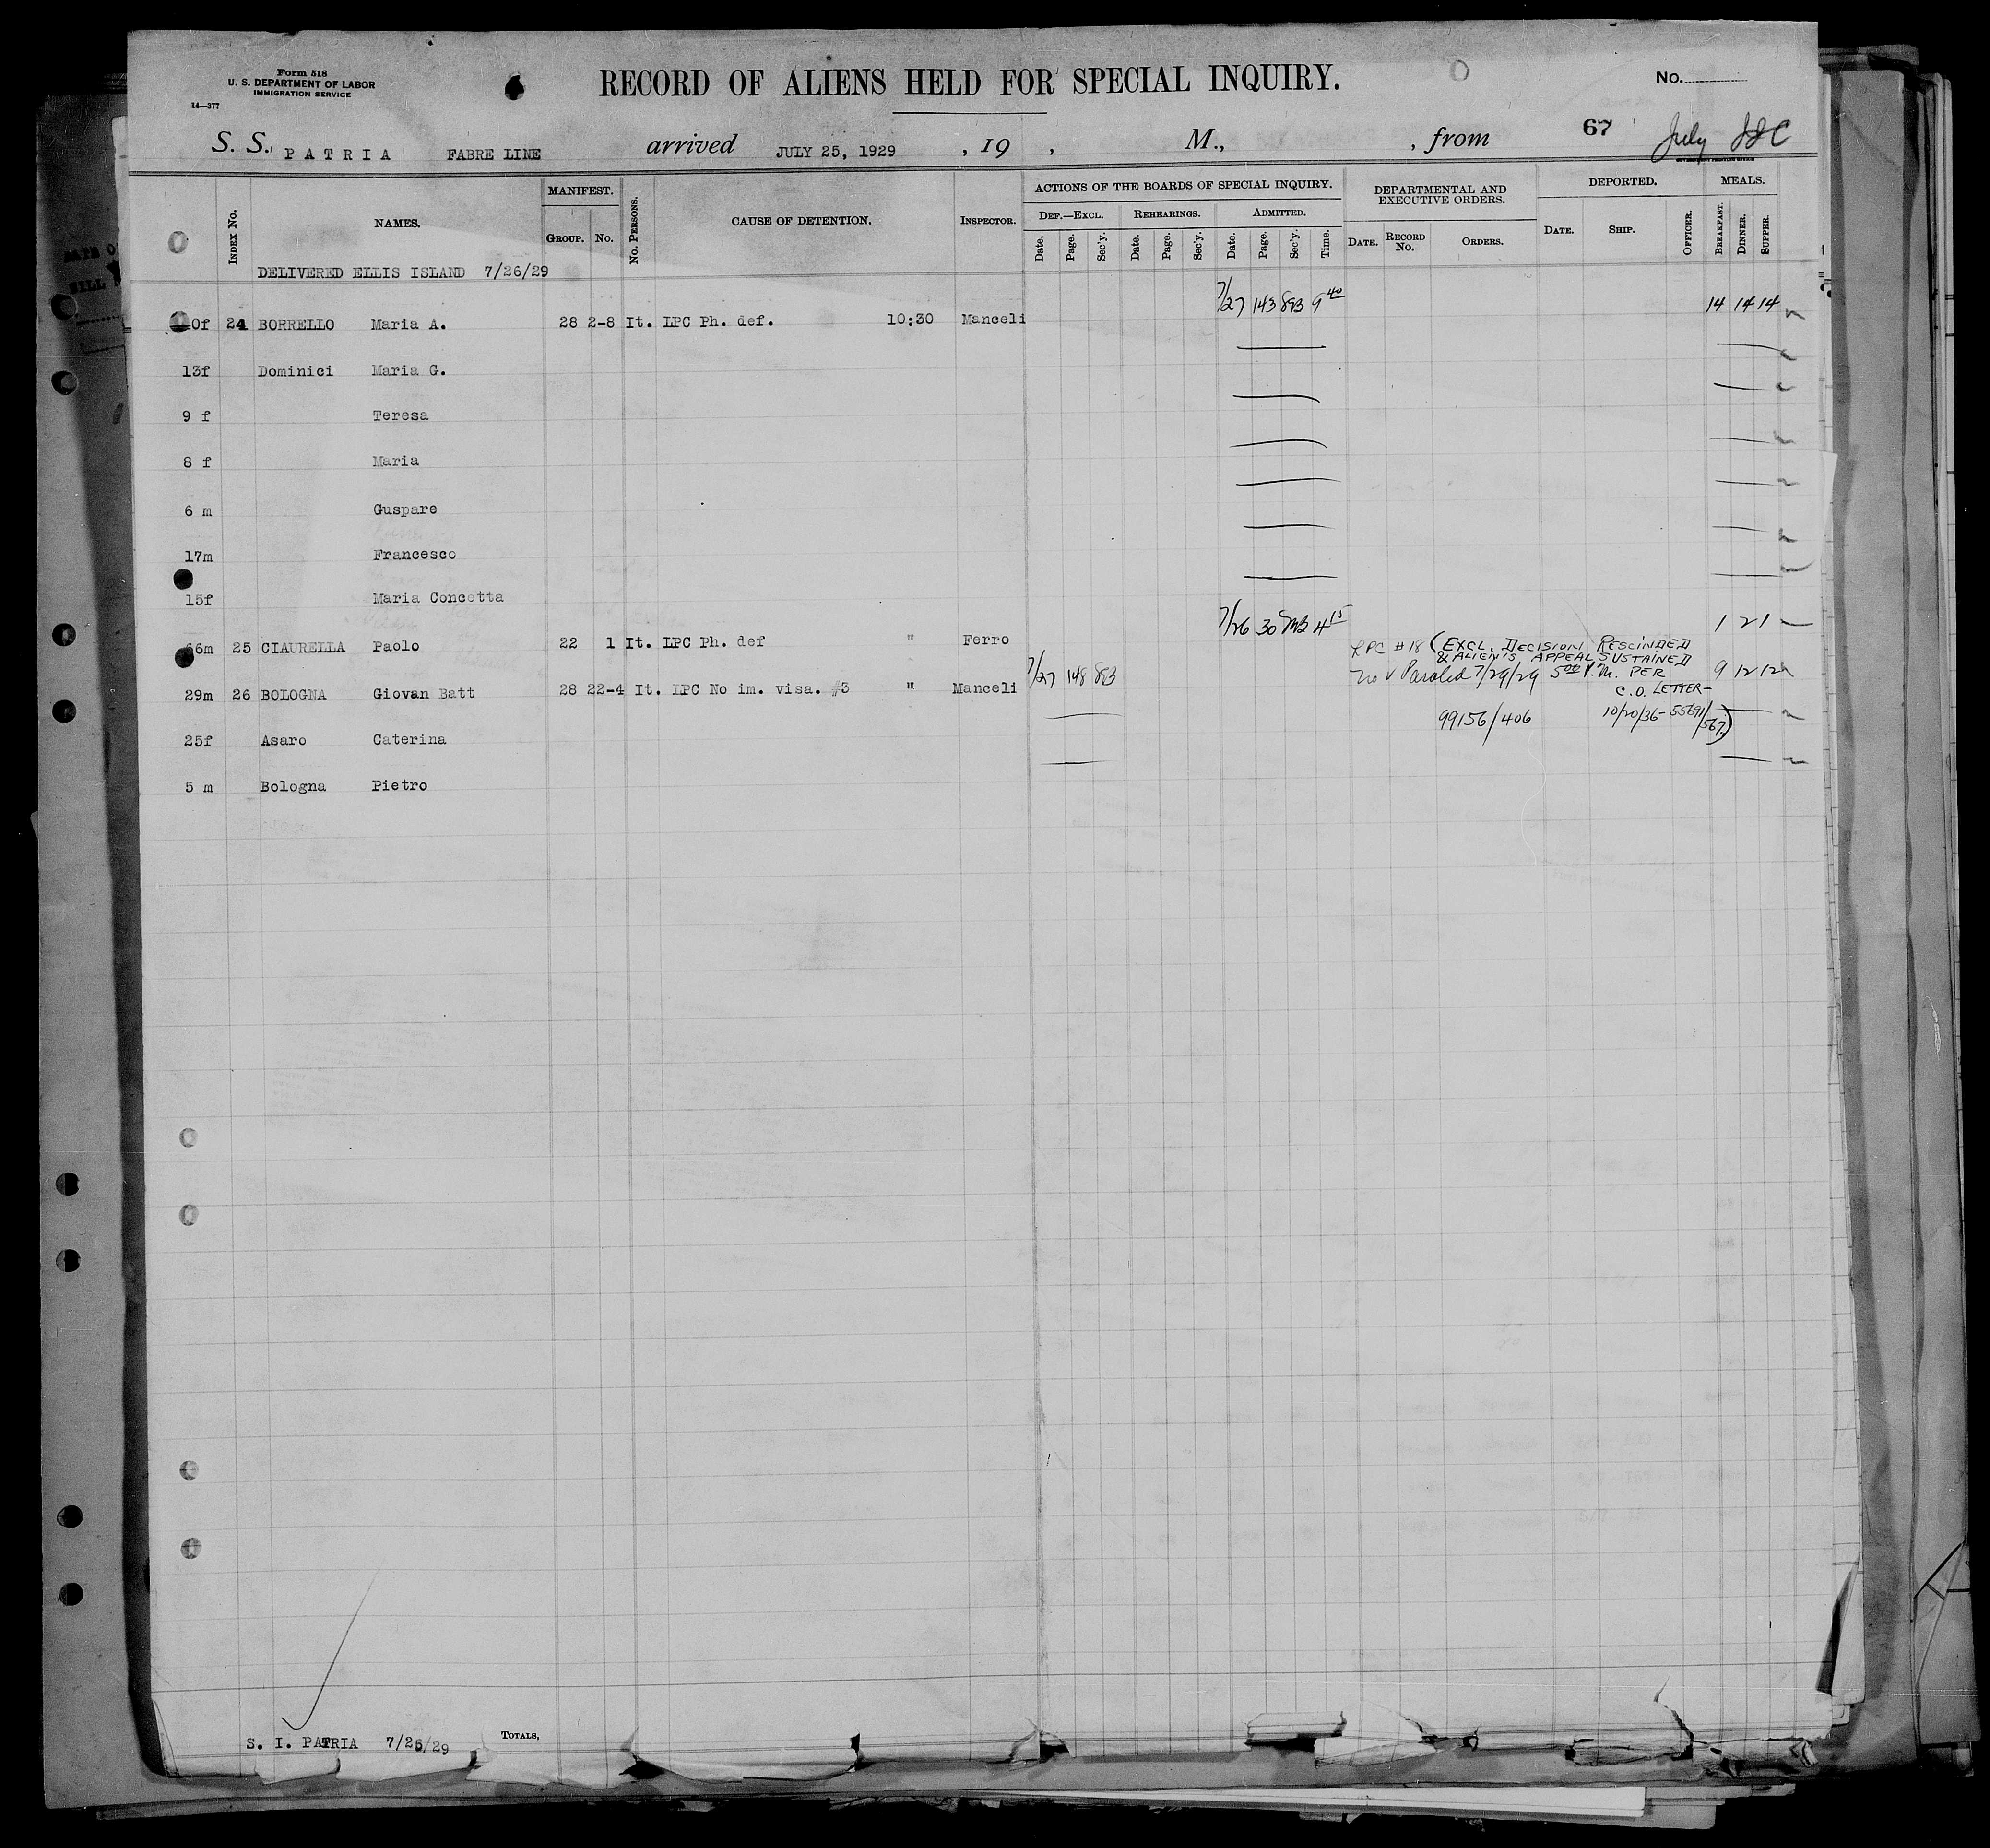 Form 518
U. S. DEPARTMENT OF LABOR
IMMIGRATION SERVICE
14—377
RECORD OF ALIENS HELD FOR SPECIAL INQUIRY.
No.
S. S. PATRIA FABRE LINE arrived JULY 25, 1929 , 19 , M., , from 67 July
INDEX No. NAMES. MANIFEST. GROUP. No. No. PERSONS. CAUSE OF DETENTION. INSPECTOR. ACTIONS OF THE BOARDS OF SPECIAL INQUIRY. DEF.—EXCL. Date. Page. Sec'y. REHEARINGS. Date. Page. Sec'y. ADMITTED. Date. Page. Sec'y. Time. DEPARTMENTAL AND EXECUTIVE ORDERS. DATE. RECORD No. ORDERS. DEPORTED. DATE. SHIP. OFFICER. MEALS. BREAKFAST. DINNER. SUPPER.
DELIVERED ELLIS ISLAND 7/26/29
0f 24 BORRELLO Maria A. 28 2-8 It. LPC Ph. def. 10:30 Manceli 7/27 143 893 9 40 14 14 14
13f Dominici Maria G.
9 f Teresa
8 f Maria
6 m Guspare
17m Francesco
15f Maria Concetta
66m 25 CIAURELLA Paolo 22 1 It. LPC Ph. def " Ferro 7/26 30 4 15 1 2 1
LPC #18 (EXCL. DECISION RESCINDED
& ALIEN'S APPEAL SUSTAINED
29m 26 BOLOGNA Giovan Batt 28 22-4 It. LPC No im. visa. #3 " Manceli 7/27 148 893 Paroled 7/29/29 5 00 P.M. PER 9 12 12
C.O. LETTER—
99156/406 10/20/36-55691/567)
25f Asaro Caterina
5 m Bologna Pietro
S. I. PATRIA 7/26/29 TOTALS,